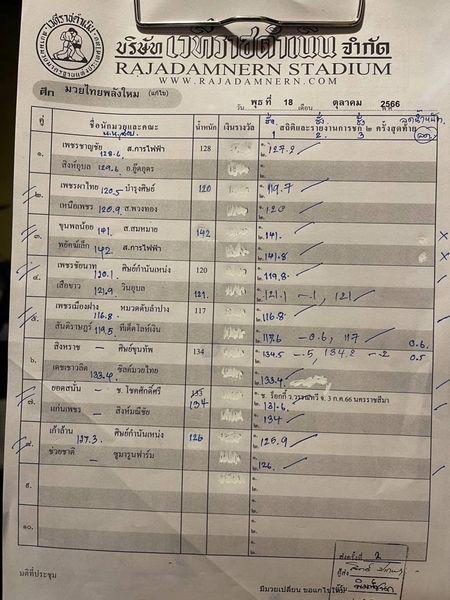 เวทีราชดำเนิน
บริษัท เวทีราชดำเนิน จำกัด
RAJADAMNERN STADIUM
WWW.RAJADAMNERN.COM
ศึก มวยไทยพลังใหม่ (แก้ไข)
วัน พุธ ที่ 18 เดือน ตุลาคม พ.ศ. 2566
คู่ ชื่อนักมวยและคณะ น้ำหนัก เงินรางวัล สถิติและรายงานการชก ๒ ครั้งสุดท้าย
1 2. 3.
๑. เพชรชาญชัย 128.6 ส.การไฟฟ้า 128 ๑. 127.2
สิงห์อุบล 129.6 อ.อู๊ดอุดร
๒. เพชรผาไทย 120.5 บำรุงศิษย์ 120 119.7
เหนือเพชร 120.9 ส.พวงทอง 120
๓. ขุนพลน้อย 141. ส.สมหมาย 142 141. x
พยัคฆ์เล็ก 142 ส.การไฟฟ้า 141.8 x
๔. เพชรชัยนาท 120.1 ศิษย์กำนันเหน่ง 120 119.8
เสือขาว 121.9 วินอุบล 121. 121.1 -.1, 121
๕. เพชรเมืองฝาง 116.8 หมวดดับลำปาง 117 116.8
สันติราษฎร์ 119.5 ทีเด็ดโลห์เงิน 117.6 -0.6, 117 0.6.
๖. สิงหราช - ศิษย์ขุนทัพ 134 134.5 -.5, 134.2 -.2 0.5
เดชเชาวลิต 133.4 ซิลค์มวยไทย 133.4
๗. ยอดสนั่น - ช. โชคศักดิ์ศรี 135 134 ช. ร็อกกี้ ว.วรรณทวี จ. 3 ก.ค.66 นครราชสีมา
131.6
แก่นเพชร - สิงห์มณีชัย 134
๘. เก้าล้าน 127.3. ศิษย์กำนันเหน่ง 126 125.9
ช่วยชาติ - ชูมารูนฟาร์ม 126.
๙.
๑๐.
มติที่ประชุม
ส่งครั้งที่ 2
ผู้ส่ง
มีมวยเปลี่ยน ขอแก้ไขให้